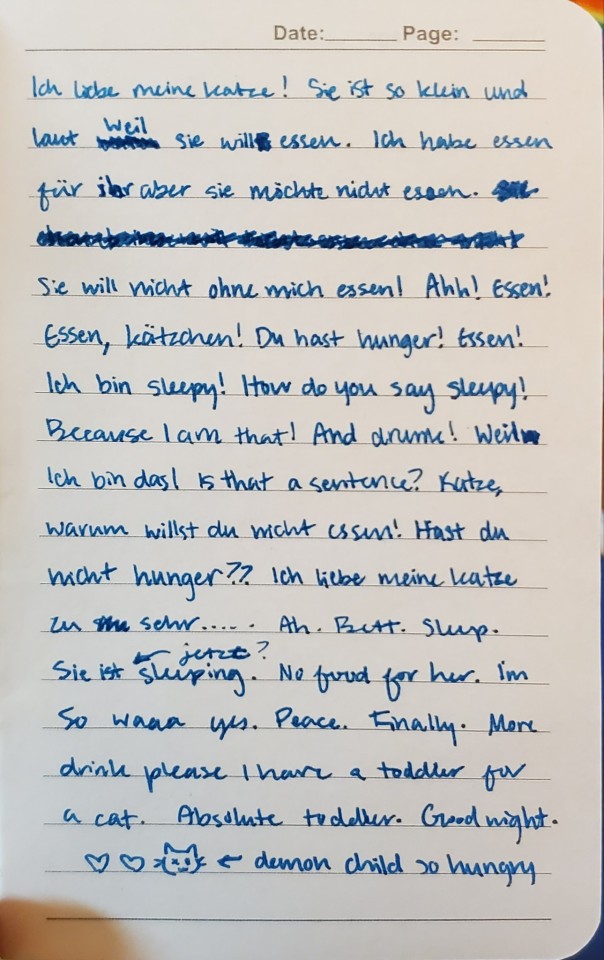 Date: Page:
Ich liebe meine katze! Sie ist so klein und
laut weil sie will essen. Ich habe essen
für ihr aber sie möchte nicht essen.
Sie will nicht ohne mich essen! Ahh! Essen!
Essen, kätzchen! Du hast hunger! Essen!
Ich bin sleepy! How do you say sleepy!
Because I am that! And drunk! Weil
Ich bin das! Is that a sentence? Katze,
warum willst du nicht essen! Hast du
nicht hunger?? Ich liebe meine katze
zu sehr..... Ah. Bett. Sleep.
Sie ist ← jetzt? sleeping. No food for her. I'm
So waaa yes. Peace. Finally. More
drink please I have a toddler for
a cat. Absolute toddler. Good night.
♡ ♡ ← demon child so hungry